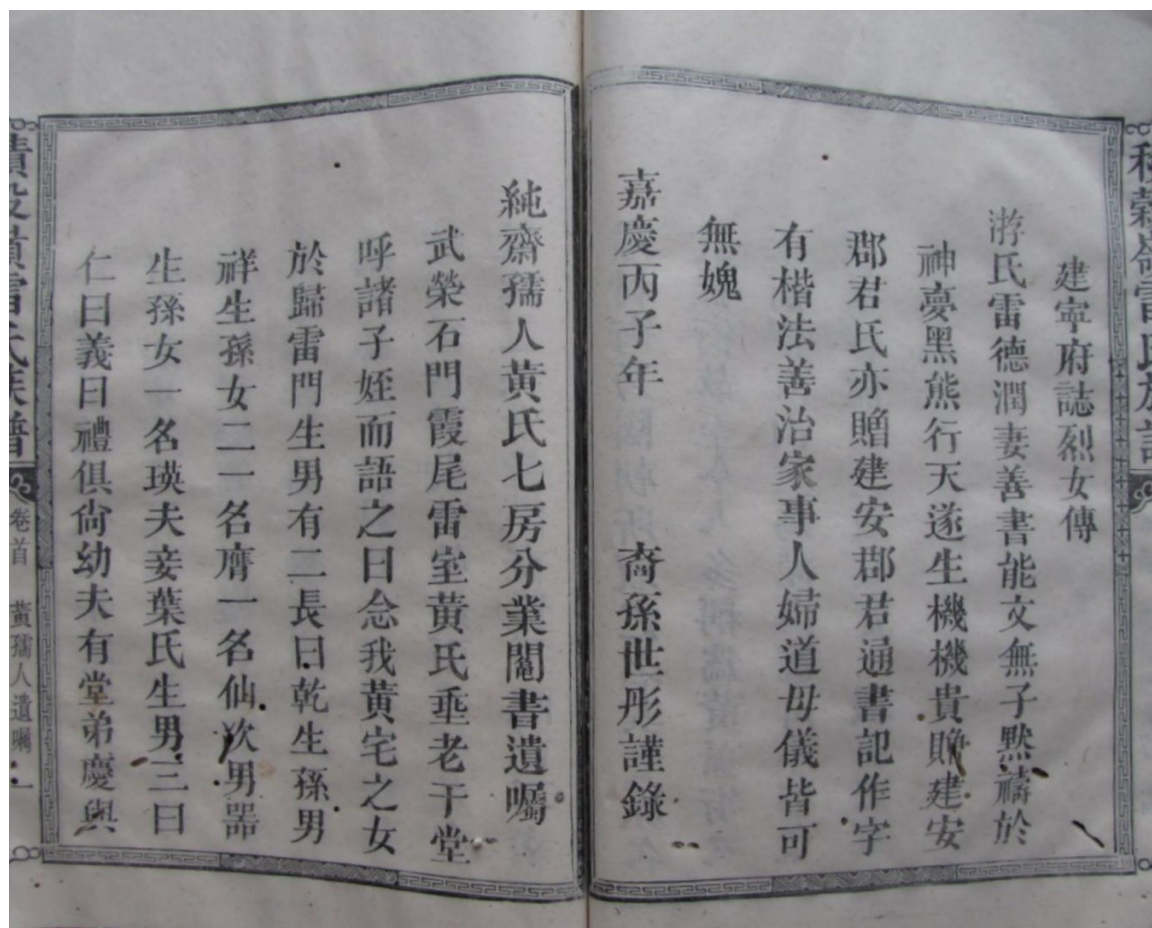 建寧府誌烈女傳
游氏雷德潤妻善書能文無子默禱於
神夢黑熊行天遂生機機貴贈建安
郡君氏亦贈建安郡君通書記作字
有楷法善治家事人婦道母儀皆可
無媿
嘉慶丙子年 裔孫世彤謹錄
純齋孺人黃氏七房分業鬮書遺囑
武榮石門霞尾雷室黃氏垂老于堂
呼諸子姪而語之曰念我黃宅之女
於歸雷門生男有二長曰乾生孫男
祥生孫女二一名膺一名仙次男器
生孫女一名瑛夫妾葉氏生男三曰
仁曰義曰禮俱尙幼夫有堂弟慶與
雷氏族譜
卷首 黃孺人遺囑 一